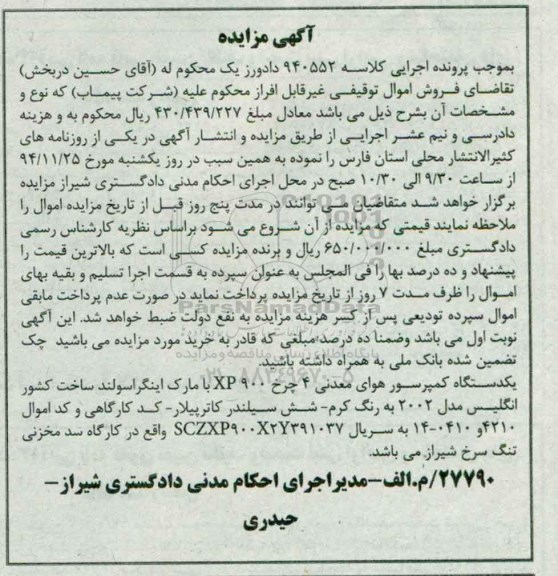 آگهی مزایده
بموجب پرونده اجرایی کلاسه ۹۴۰۵۵۲ دادورز یک محکوم له (آقای حسین دربخش)
تقاضای فروش اموال توقیفی غیرقابل افراز محکوم علیه (شرکت پیماب) که نوع و
مشخصات آن بشرح ذیل می باشد معادل مبلغ ۴۳۰/۴۳۹/۲۲۷ ریال محکوم به و هزینه
دادرسی و نیم عشر اجرایی از طریق مزایده و انتشار آگهی در یکی از روزنامه های
کثیرالانتشار محلی استان فارس را نموده به همین سبب در روز یکشنبه مورخ ۹۴/۱۱/۲۵
از ساعت ۹/۳۰ الی ۱۰/۳۰ صبح در محل اجرای احکام مدنی دادگستری شیراز مزایده
برگزار خواهد شد متقاضیان می توانند در مدت پنج روز قبل از تاریخ مزایده اموال را
ملاحظه نمایند قیمتی که مزایده از آن شروع می شود براساس نظریه کارشناس رسمی
دادگستری مبلغ ۶۵۰/۰۰۰/۰۰۰ ریال و برنده مزایده کسی است که بالاترین قیمت را
پیشنهاد و ده درصد بها را فی المجلس به عنوان سپرده به قسمت اجرا تسلیم و بقیه بهای
اموال را ظرف مدت ۷ روز از تاریخ مزایده پرداخت نماید در صورت عدم پرداخت مابقی
اموال سپرده تودیعی پس از کسر هزینه مزایده به نفع دولت ضبط خواهد شد. این آگهی
نوبت اول می باشد وضمنا ده درصد مبلغی که قادر به خرید مورد مزایده می باشید چک
تضمین شده بانک ملی به همراه داشته باشید.
یکدستگاه کمپرسور هوای معدنی ۴ چرخ XP ۹۰۰ با مارک اینگراسولند ساخت کشور
انگلیس مدل ۲۰۰۲ به رنگ کرم- شش سیلندر کاترپیلار- کد کارگاهی و کد اموال
۴۲۱۰و ۰۴۱۰-۱۴ به سریال SCZXP۹۰۰X۲Y۳۹۱۰۳۷ واقع در کارگاه سد مخزنی
تنگ سرخ شیراز می باشد.
۲۷۷۹۰/م.الف-مدیراجرای احکام مدنی دادگستری شیراز-
حیدری
ParsNamadData
پایگاه اطلاع رسانی مناقصه و مزایده
۰۲۱-۸۸۳۴۹۶۷۰-۵